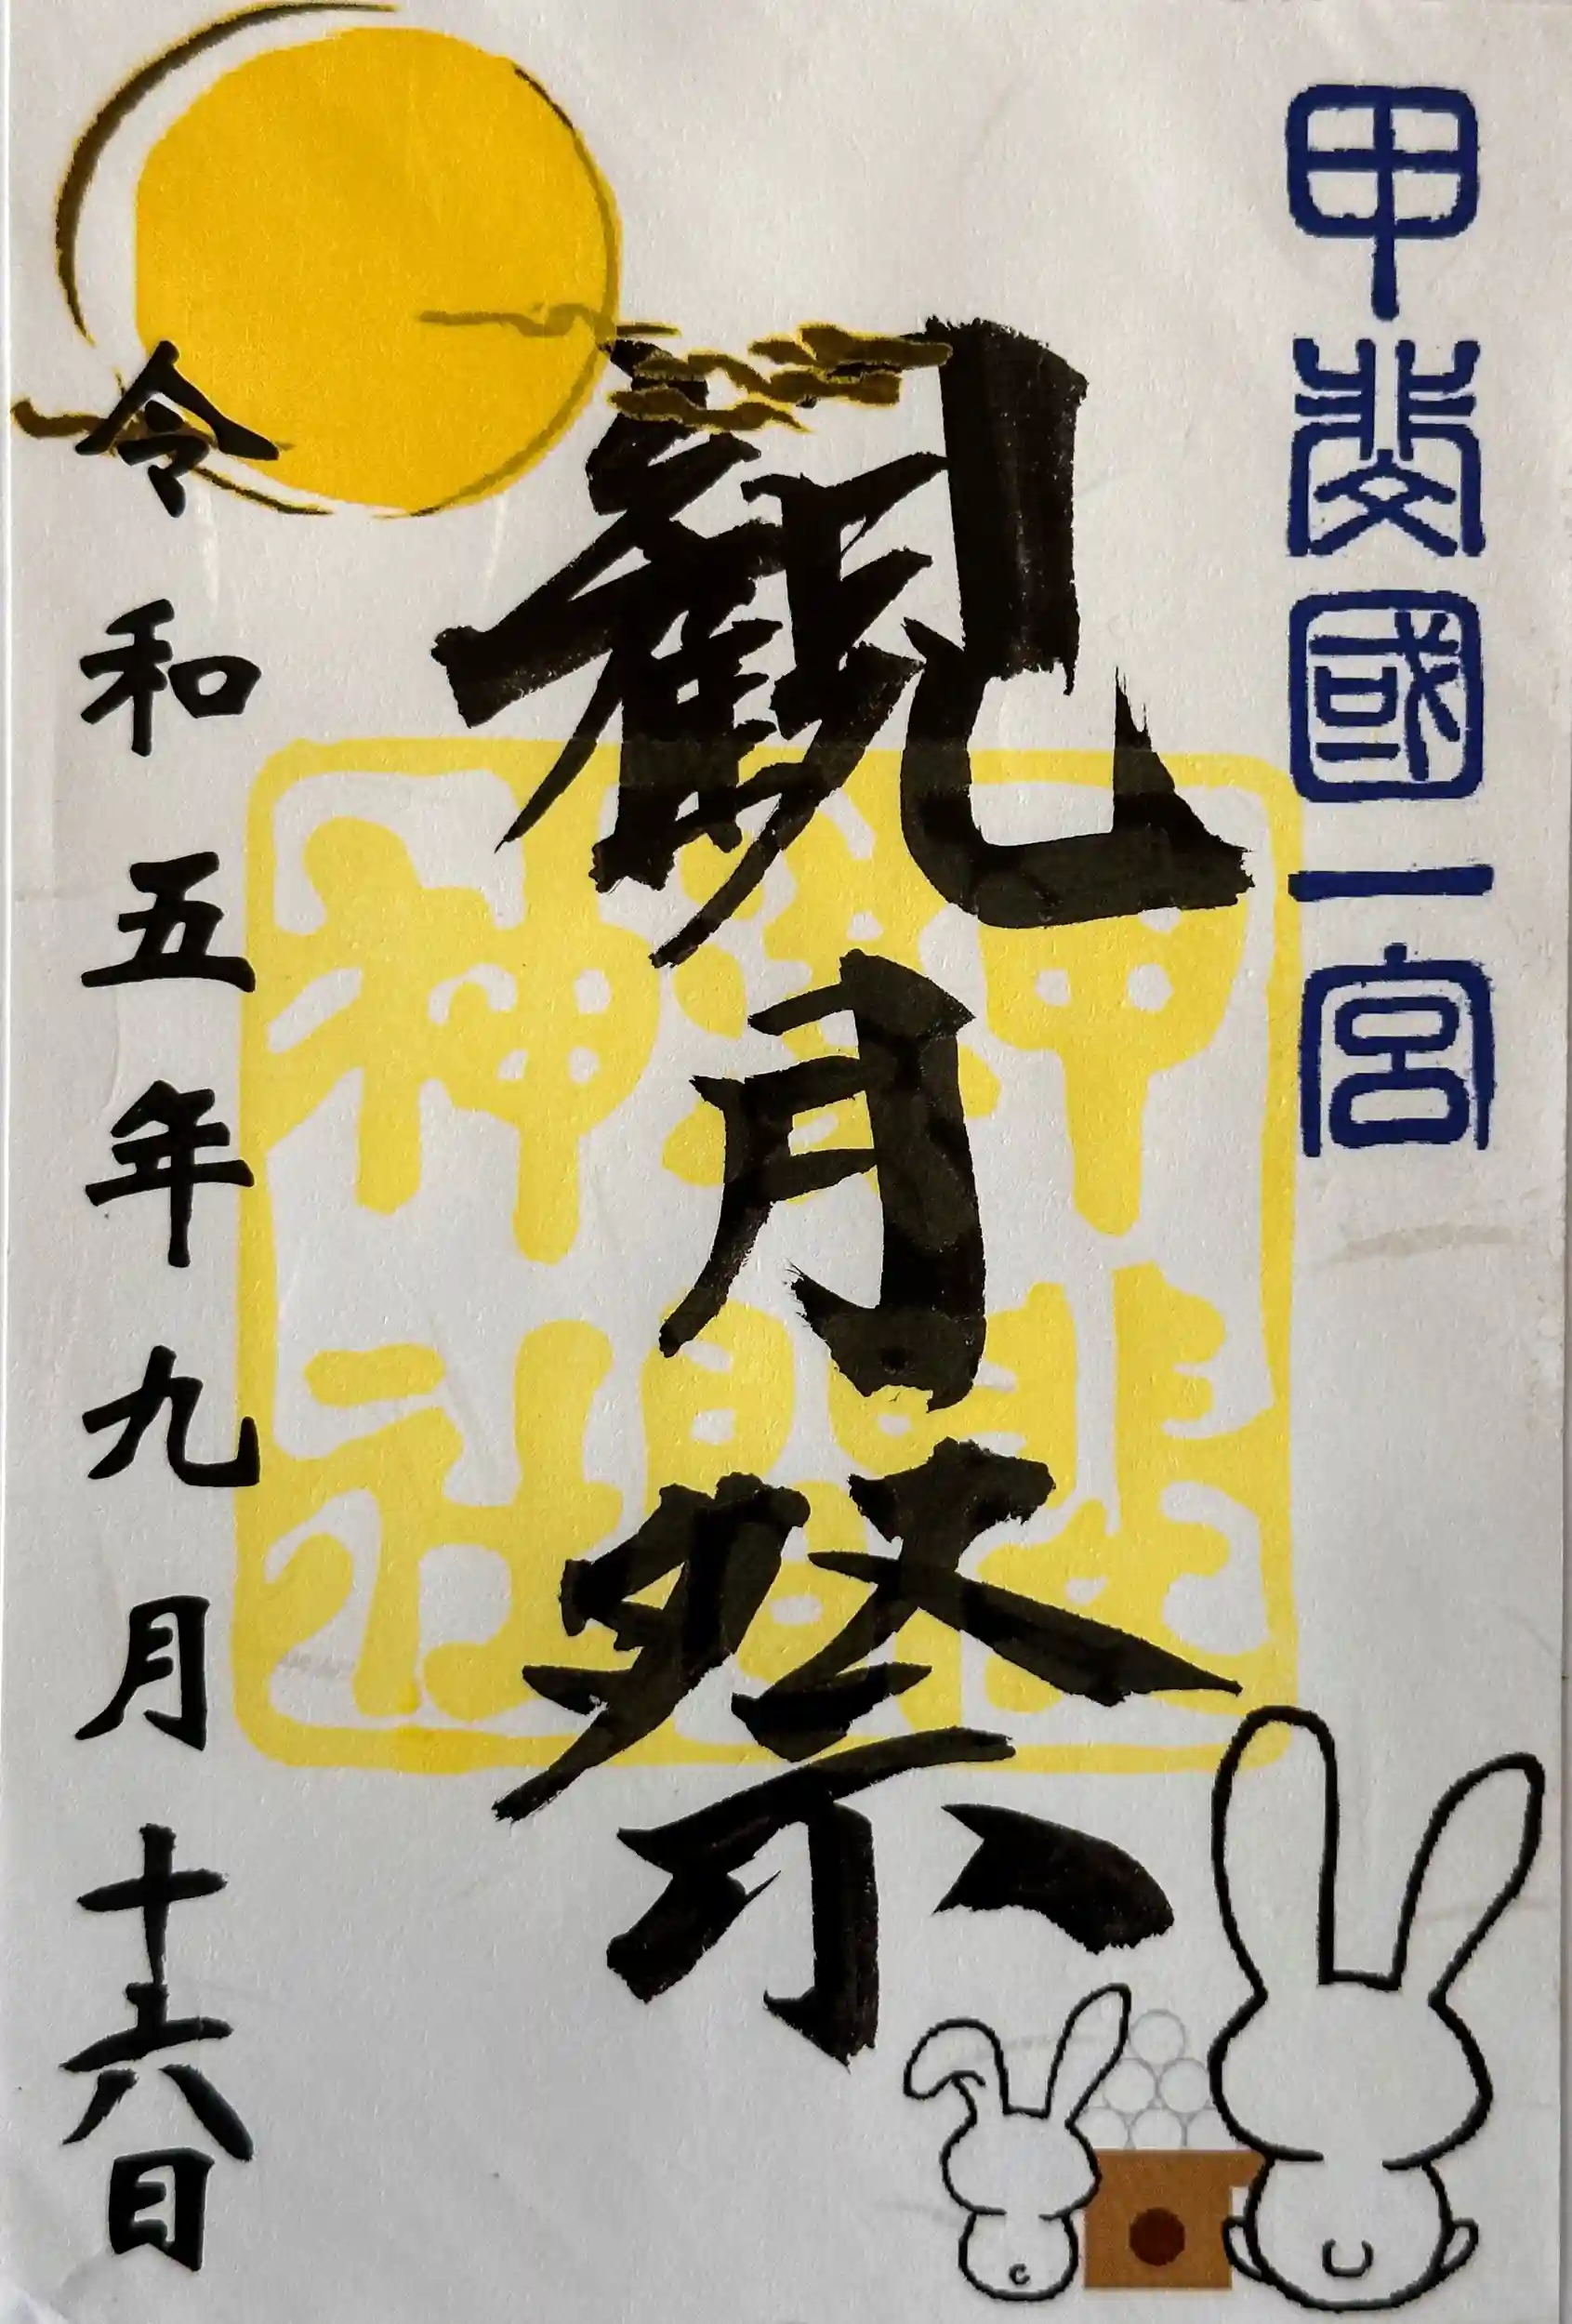 甲斐國一宮
観月祭
甲斐
神社
令和五年九月十六日